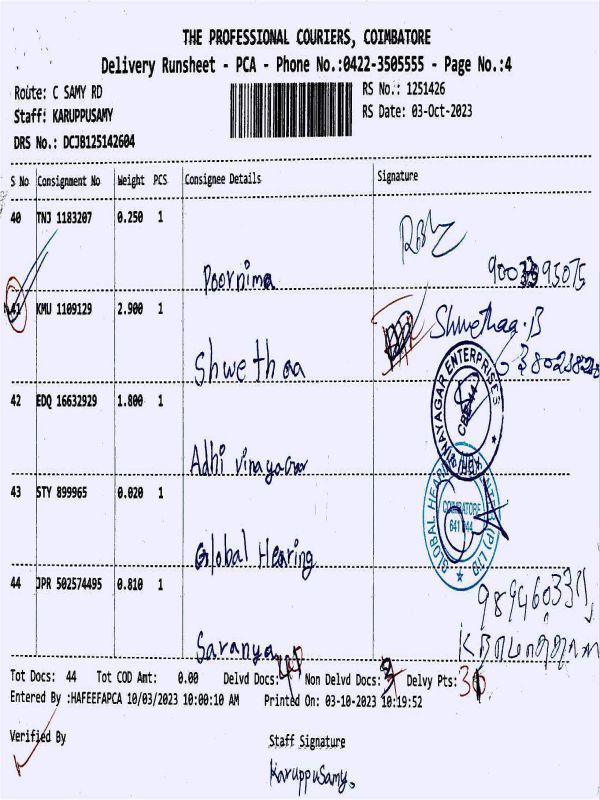 THE PROFESSIONAL COURIERS, COIMBATORE
Delivery Runsheet - PCA - Phone No.:0422-3505555 - Page No.:4
Route: C SAMY RD
RS No.: 1251426
Staff: KARUPPUSAMY
RS Date: 03-Oct-2023
DRS No.: DCJB125142604
S No Consignment No Weight PCS Consignee Details Signature
40 TNJ 1183207 0.250 1
Poornima
41 KMU 1109129 2.900 1
Shwethaa.B
Shwethaa
42 EDQ 16632929 1.800 1
VINAYAGAR ENTERPRISES
Adhi vinayagar
43 STY 899965 0.020 1
GLOBAL HEARING (P) LTD
COIMBATORE
Global Hearing
44 JPR 502574495 0.810 1
Saranya
Tot Docs: 44 Tot COD Amt: 0.00 Delvd Docs: Non Delvd Docs: Delvy Pts:
Entered By :HAFEEFAPCA 10/03/2023 10:00:10 AM Printed On: 03-10-2023 10:19:52
Verified By
Staff Signature
KaruppuSamy.